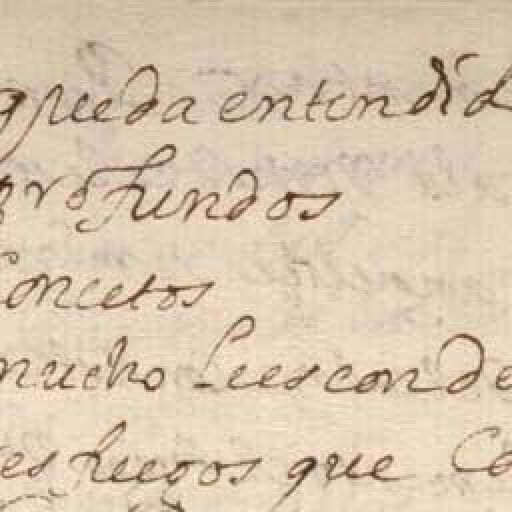 queda entendid
profundos
concetos
mucho se esconde
es fuegos que Ca